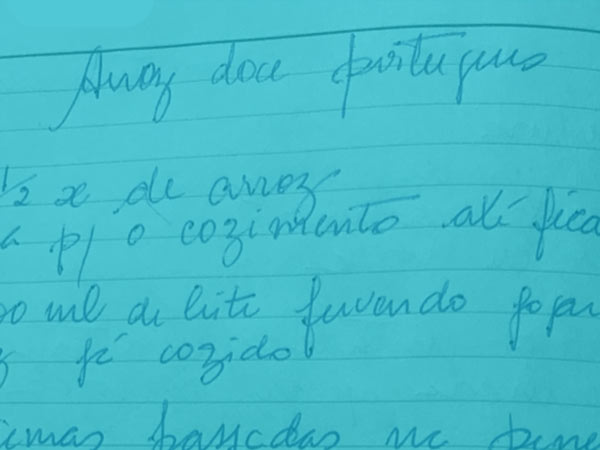 Arroz doce portugues
1/2 x de arroz
p/ o cozimento até fica
ml de leite fervendo
já cozido
passadas na pene